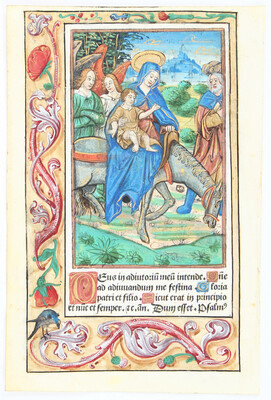 Deus in adiutoriū meū intende. Dñe
ad adiuuandum me festina Gloria
patri et filio. Sicut erat in principio
et nūc et semper. ⁊c. an̄. Dum esset. Psalm⁹